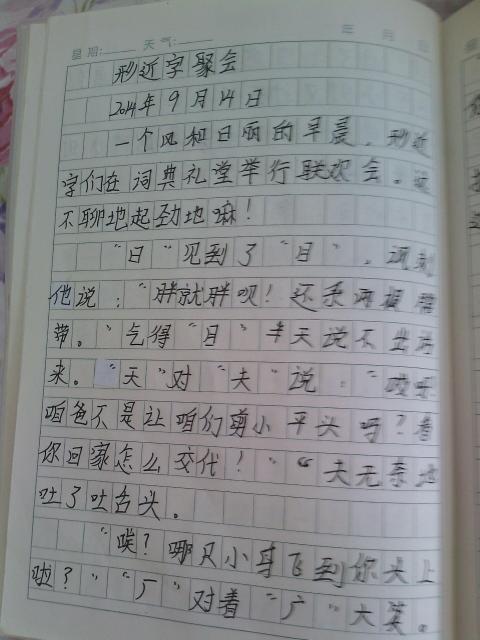 星期: 天气: 年 月 日
形近字聚会
2014年9月14日
一个风和日丽的早晨，形近
字们在词典礼堂举行联欢会。
不聊地起劲地嘛！
“日“见到了“目”，讽刺
他说：“胖就胖呗！还系两根
带。”气得“目”半天说不出话
来。“天”对“夫”说：“哎呀
咱爸不是让咱们剪小平头吗？看
你回家怎么交代！”“夫无奈地
吐了吐舌头。
“唉？哪只小鸟飞到你头上
啦？”“厂”对着“广”大笑。